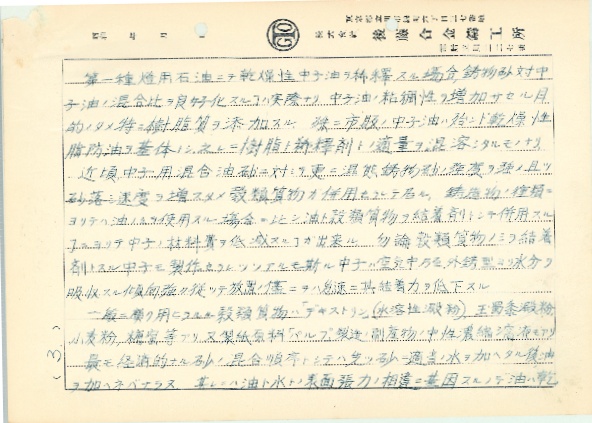 株式会社 後藤合金鋳工所
第一種燈用石油ニテ乾燥性中子油ヲ稀釋スル場合鋳物砂ニ対中
子油ノ混合比ヲ良好化スルヿハ実際ナリ 中子油ノ粘稠性ヲ増加サセル目
的ノタメ特ニ樹脂質ヲ添加スル 市販ノ中子油ハ殆ンド乾燥性
脂肪油ヲ基体トシ 之レニ樹脂ト稀釋剤トノ適量ヲ混溶シタルモノナリ
近頃中子用混合油砂ニ対シテ更ニ混態鋳物砂ノ強度ヲ強メ且ツ
砂落シ速度ヲ増スタメ穀類質物ガ併用サレテ居ル 鋳造物ノ種類ニ
ヨリテハ油ノミヲ使用スル場合 油ト穀類質物ヲ結着剤トシテ併用スル
ヿニヨリテ中子ノ材料費ヲ低減スルヿガ出来ル 勿論穀類質物ノミヲ結着
剤トスル中子モ製作サレツツアルモ斯ル中子ハ空気中乃至外鋳型ヨリ水分ヲ
吸収スル傾向強ク従ッテ放置ノ儘ニテハ急速ニ其結着力ヲ低下スル
一般ニ穀類質物ハ「デキストリン」(水溶性澱粉) 玉蜀黍澱粉
小麦粉 糖蜜等デアリ又製紙原料「パルプ」製造ノ副産物ノ中性濃縮溶液モアリ
最モ経済的ナル砂ノ混合順序トシテハ先ヅ砂ニ適当ノ水ヲ加ヘタル後油
ヲ加ヘネバナラヌ 其レハ油ト水トノ表面張力ノ相違ニ基因スルノデ油ハ乾
(3)